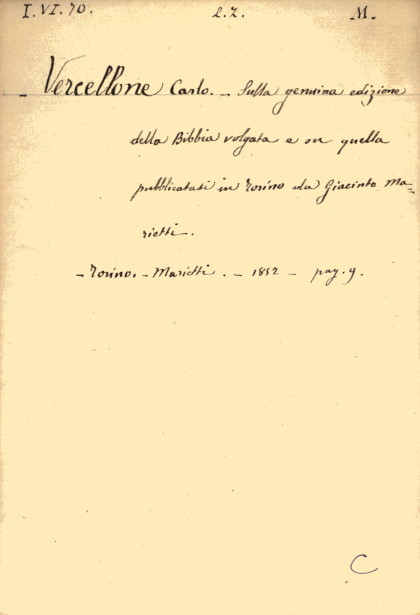 I. VI. 70. 2.7. M.
- Vercellone Carlo. - Sulla genuina edizione
della Bibbia volgata e su quella
pubblicatasi in Torino da Giacinto Ma-
rietti.
- Torino. - Marietti. - 1852 - pag. 9.
C